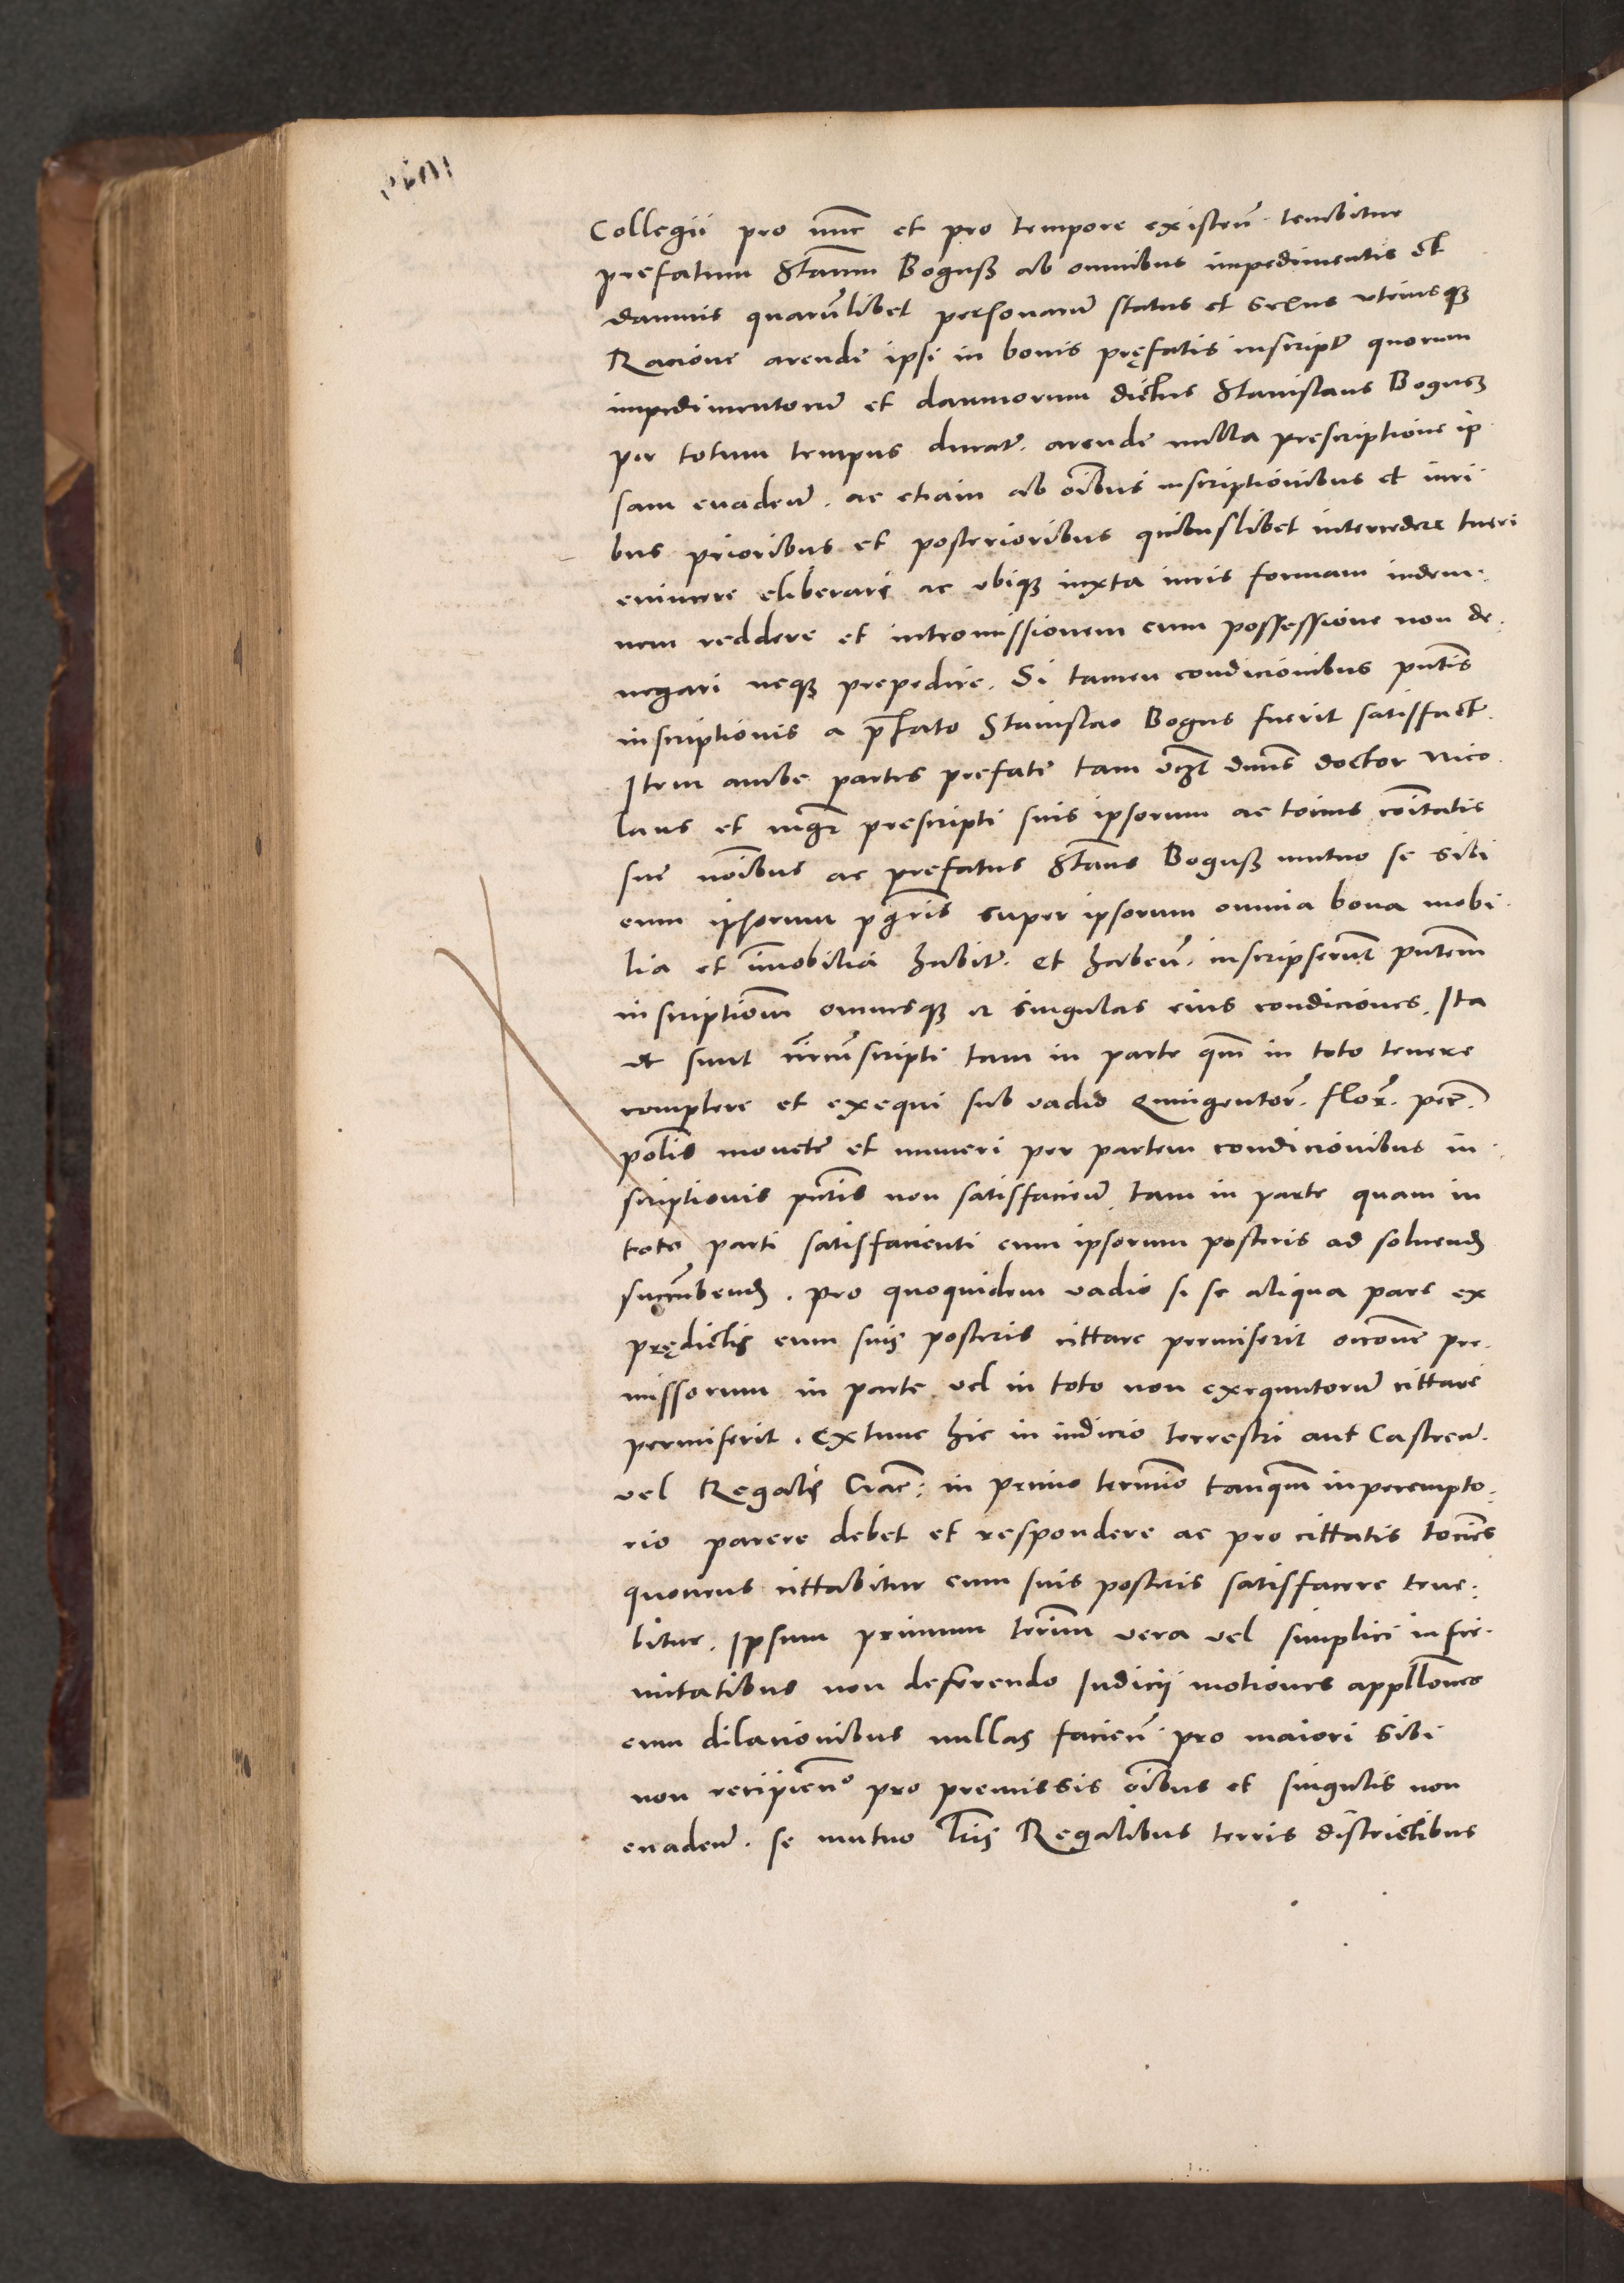 Collegii pro nunc et pro tempore existen̄. tenebitur
prefatum Stanm Boguß ab omnibus impedimentis et
damnis quarūlibet personarum status et sexus utriusqz
Racione arende ipsi in bonis pręfatis inscripte quorum
impedimentorum et damnorum dictus Stanislaus Bogusz
per totum tempus durat. arende nulla prescriptione ip
sam evaden̄. ac etiam ab oībus inscriptionibus et iuri
bus prioribus et posterioribus quibuslibet intercedere tueri
evincere eliberare ac ubiqz iuxta iuris formam indem
nem reddere et intromissionem cum possessione non de
negari neqz prepedire. Si tamen condicionibus pntis
inscriptionis a pfato Stanislao Bogus fuerit satisfact.
Item ambe partes prefate tam dnus doctor Nico
laus et mgri prescripti suis ipsorum ac tocius coītatis
sue noībus ac prefatus Stanus Boguß mutuo se sibi
cum ipsorum pgris super ipsorum omnia bona mobi
lia et īmobilia habit. et haben̄. inscripserunt pntem
inscriptionem omnesqz et singulas eius condiciones. Ita
ut sunt circūscripti tam in parte qm in toto tenere
complere et exequi sub vadio Quingentor. flor. pec.
polis monete et numeri per partem condicionibus in
scriptionis pntis non satisfacien̄. tam in parte quam in
toto parti satisfacienti cum ipsorum posteris ad solvend
succūbend. pro quoquidem vadio si se aliqua pars ex
prędictis cum suis posteris cittare permiserit occone pre
missorum in parte vel in toto non exequutorum cittare
permiserit. Extunc hic in iudicio terrestri aut Castren̄.
vel Regalis Crac: in primo termīo tanqm in perempto
rio parere debet et respondere ac pro cittatis tocies
quociens cittabitur cum suis posteris satisfacere tene
bitur. Ipsum primum termi vera vel simplici infir
mitatibus non deferendo Iudicij motiones appllones
cum dilacionibus nullas facien̄. pro maiori sibi
non recipien̄o pro premissis oībus et singulis non
evaden̄. se mutuo lris Regalibus terris districtibus